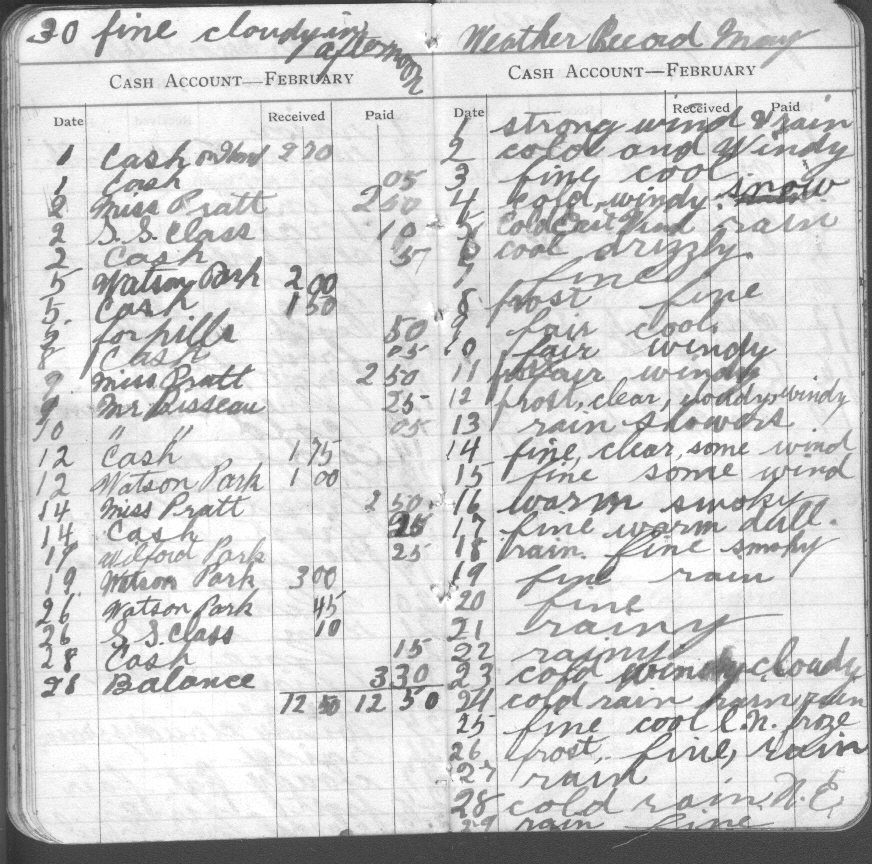 30 fine cloudy in afternoon
CASH ACCOUNT—FEBRUARY
Date Received Paid
1 Cash on Hand 2 70
1 Cash 05
2 Miss Pratt 2 50
2 S. S. Class 10
2 Cash 57
5 Watson Park 2 00
5 Cash 1 50
5 for pills 50
8 Cash 05
9 Miss Pratt 2 50
9 Mr Bisseau 25
10 " " 05
12 Cash 1 75
12 Watson Park 1 00
14 Miss Pratt 2 50
14 Cash 25
17 Wilford Park 25
19 Watson Park 3 00
26 Watson Park 45
26 S. S. Class 10
28 Cash 15
28 Balance 3 30
12 50 12 50
Weather Record May
CASH ACCOUNT—FEBRUARY
Date Received Paid
1 strong wind & rain
2 cold and windy
3 fine cool
4 cold, windy snow
5 Cold East Wind rain
6 cool drizzly.
7 fine
8 frost fine
9 fair cool
10 fair windy
11 fair windy
12 frost, clear, cloudy windy
13 rain showers
14 fine, clear, some wind
15 fine some wind
16 warm smoky
17 fine warm dull.
18 rain. fine smoky
19 fine rain
20 fine
21 rainy
22 rainy
23 cold windy cloudy
24 cold rain rain rain
25 fine cool L.N. froze
26 frost, fine, rain
27 rain
28 cold rain. N.E.
29 rain fine